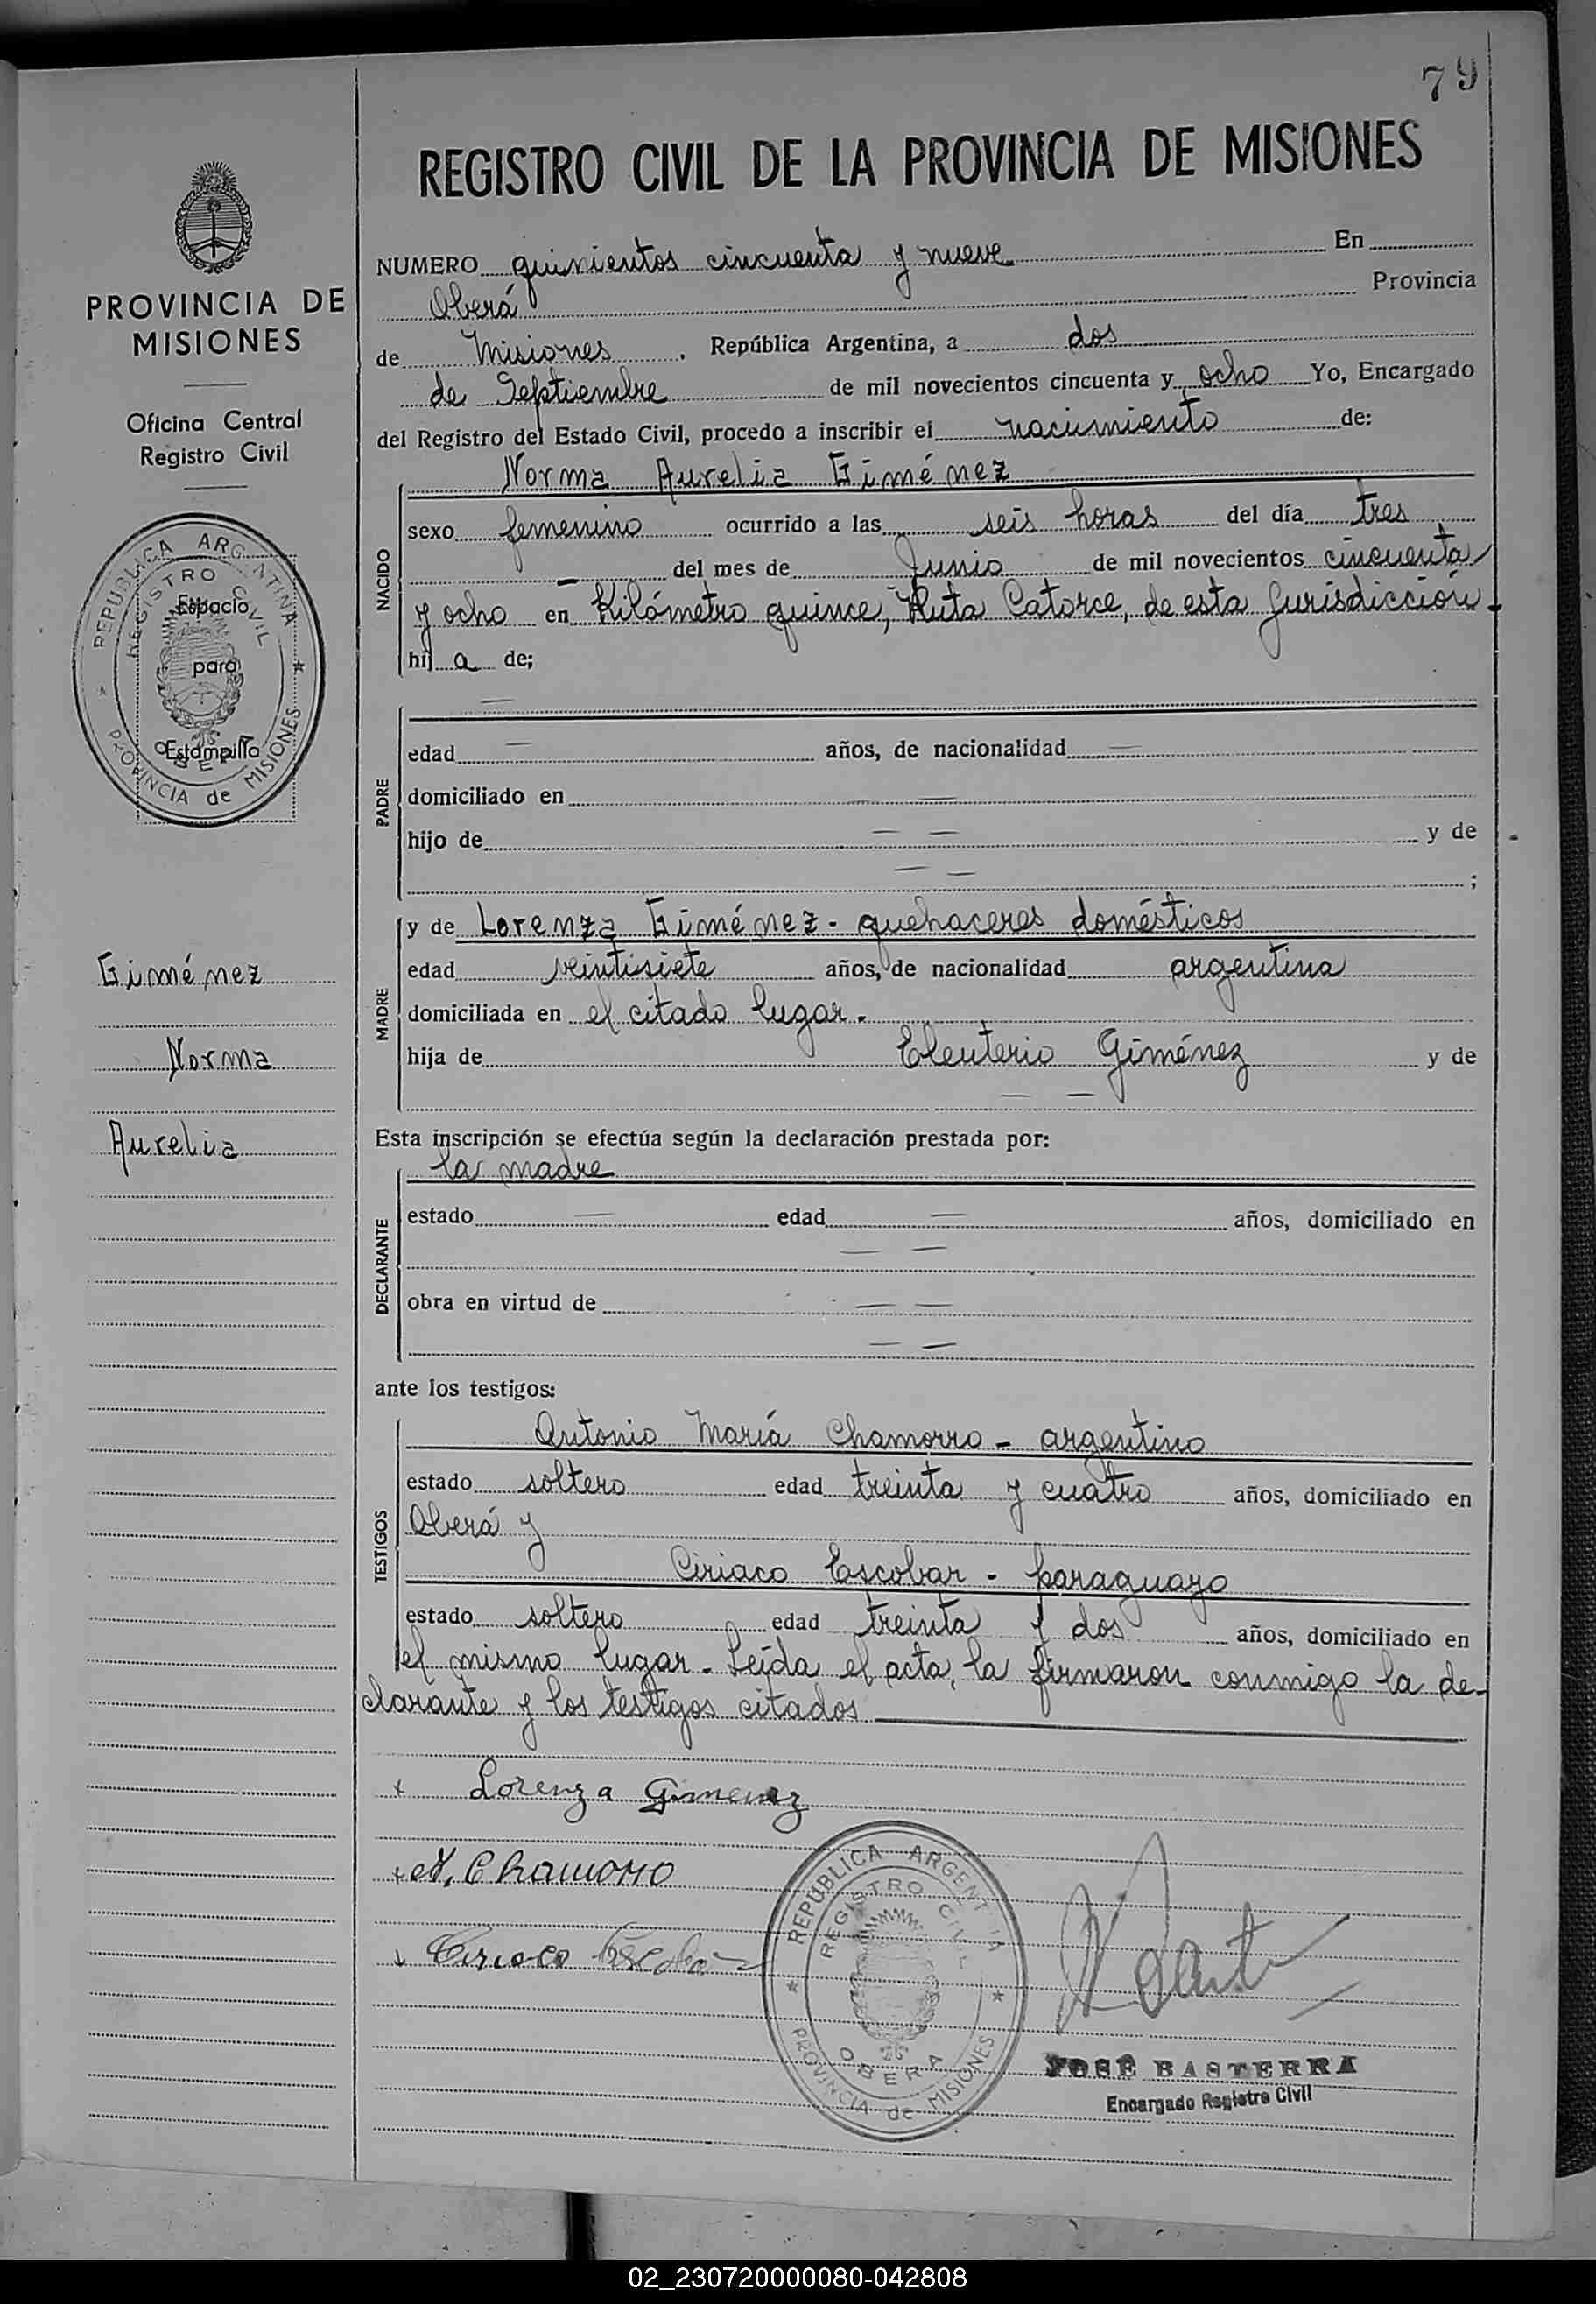 79
REGISTRO CIVIL DE LA PROVINCIA DE MISIONES
PROVINCIA DE
MISIONES
Oficina Central
Registro Civil
REPUBLICA ARGENTINA
REGISTRO CIVIL
Espacio
para
Estampilla
OBERA
PROVINCIA de MISIONES
Giménez
Norma
Aurelia
NUMERO quinientos cincuenta y nueve En
Oberá Provincia
de Misiones . República Argentina, a dos
de Septiembre de mil novecientos cincuenta y ocho Yo, Encargado
del Registro del Estado Civil, procedo a inscribir el nacimiento de:
NACIDO
Norma Aurelia Giménez
sexo femenino ocurrido a las seis horas del día tres
— del mes de Junio de mil novecientos cincuenta
y ocho en Kilómetro quince, Ruta Catorce, de esta Jurisdicción -
hij a de;
PADRE
—
edad — años, de nacionalidad —
domiciliado en — —
hijo de — — y de
— — ;
MADRE
y de Lorenza Giménez - quehaceres domésticos
edad veintisiete años, de nacionalidad argentina
domiciliada en el citado lugar.
hija de Eleuterio Giménez y de
— —
Esta inscripción se efectúa según la declaración prestada por:
DECLARANTE
la madre
estado — edad — años, domiciliado en
— —
obra en virtud de — —
— —
ante los testigos:
TESTIGOS
Antonio María Chamorro - argentino
estado soltero edad treinta y cuatro años, domiciliado en
Oberá y
Ciriaco Escobar - paraguayo
estado soltero edad treinta y dos años, domiciliado en
el mismo lugar. Leída el acta, la firmaron conmigo la de-
clarante y los testigos citados
x Lorenza Gimenez
x A. Chamorro
x Ciriaco Escobar
REPÚBLICA ARGENTINA
REGISTRO CIVIL
OBERA
PROVINCIA de MISIONES
JOSÉ BASTERRA
Encargado Registro Civil
02_230720000080-042808